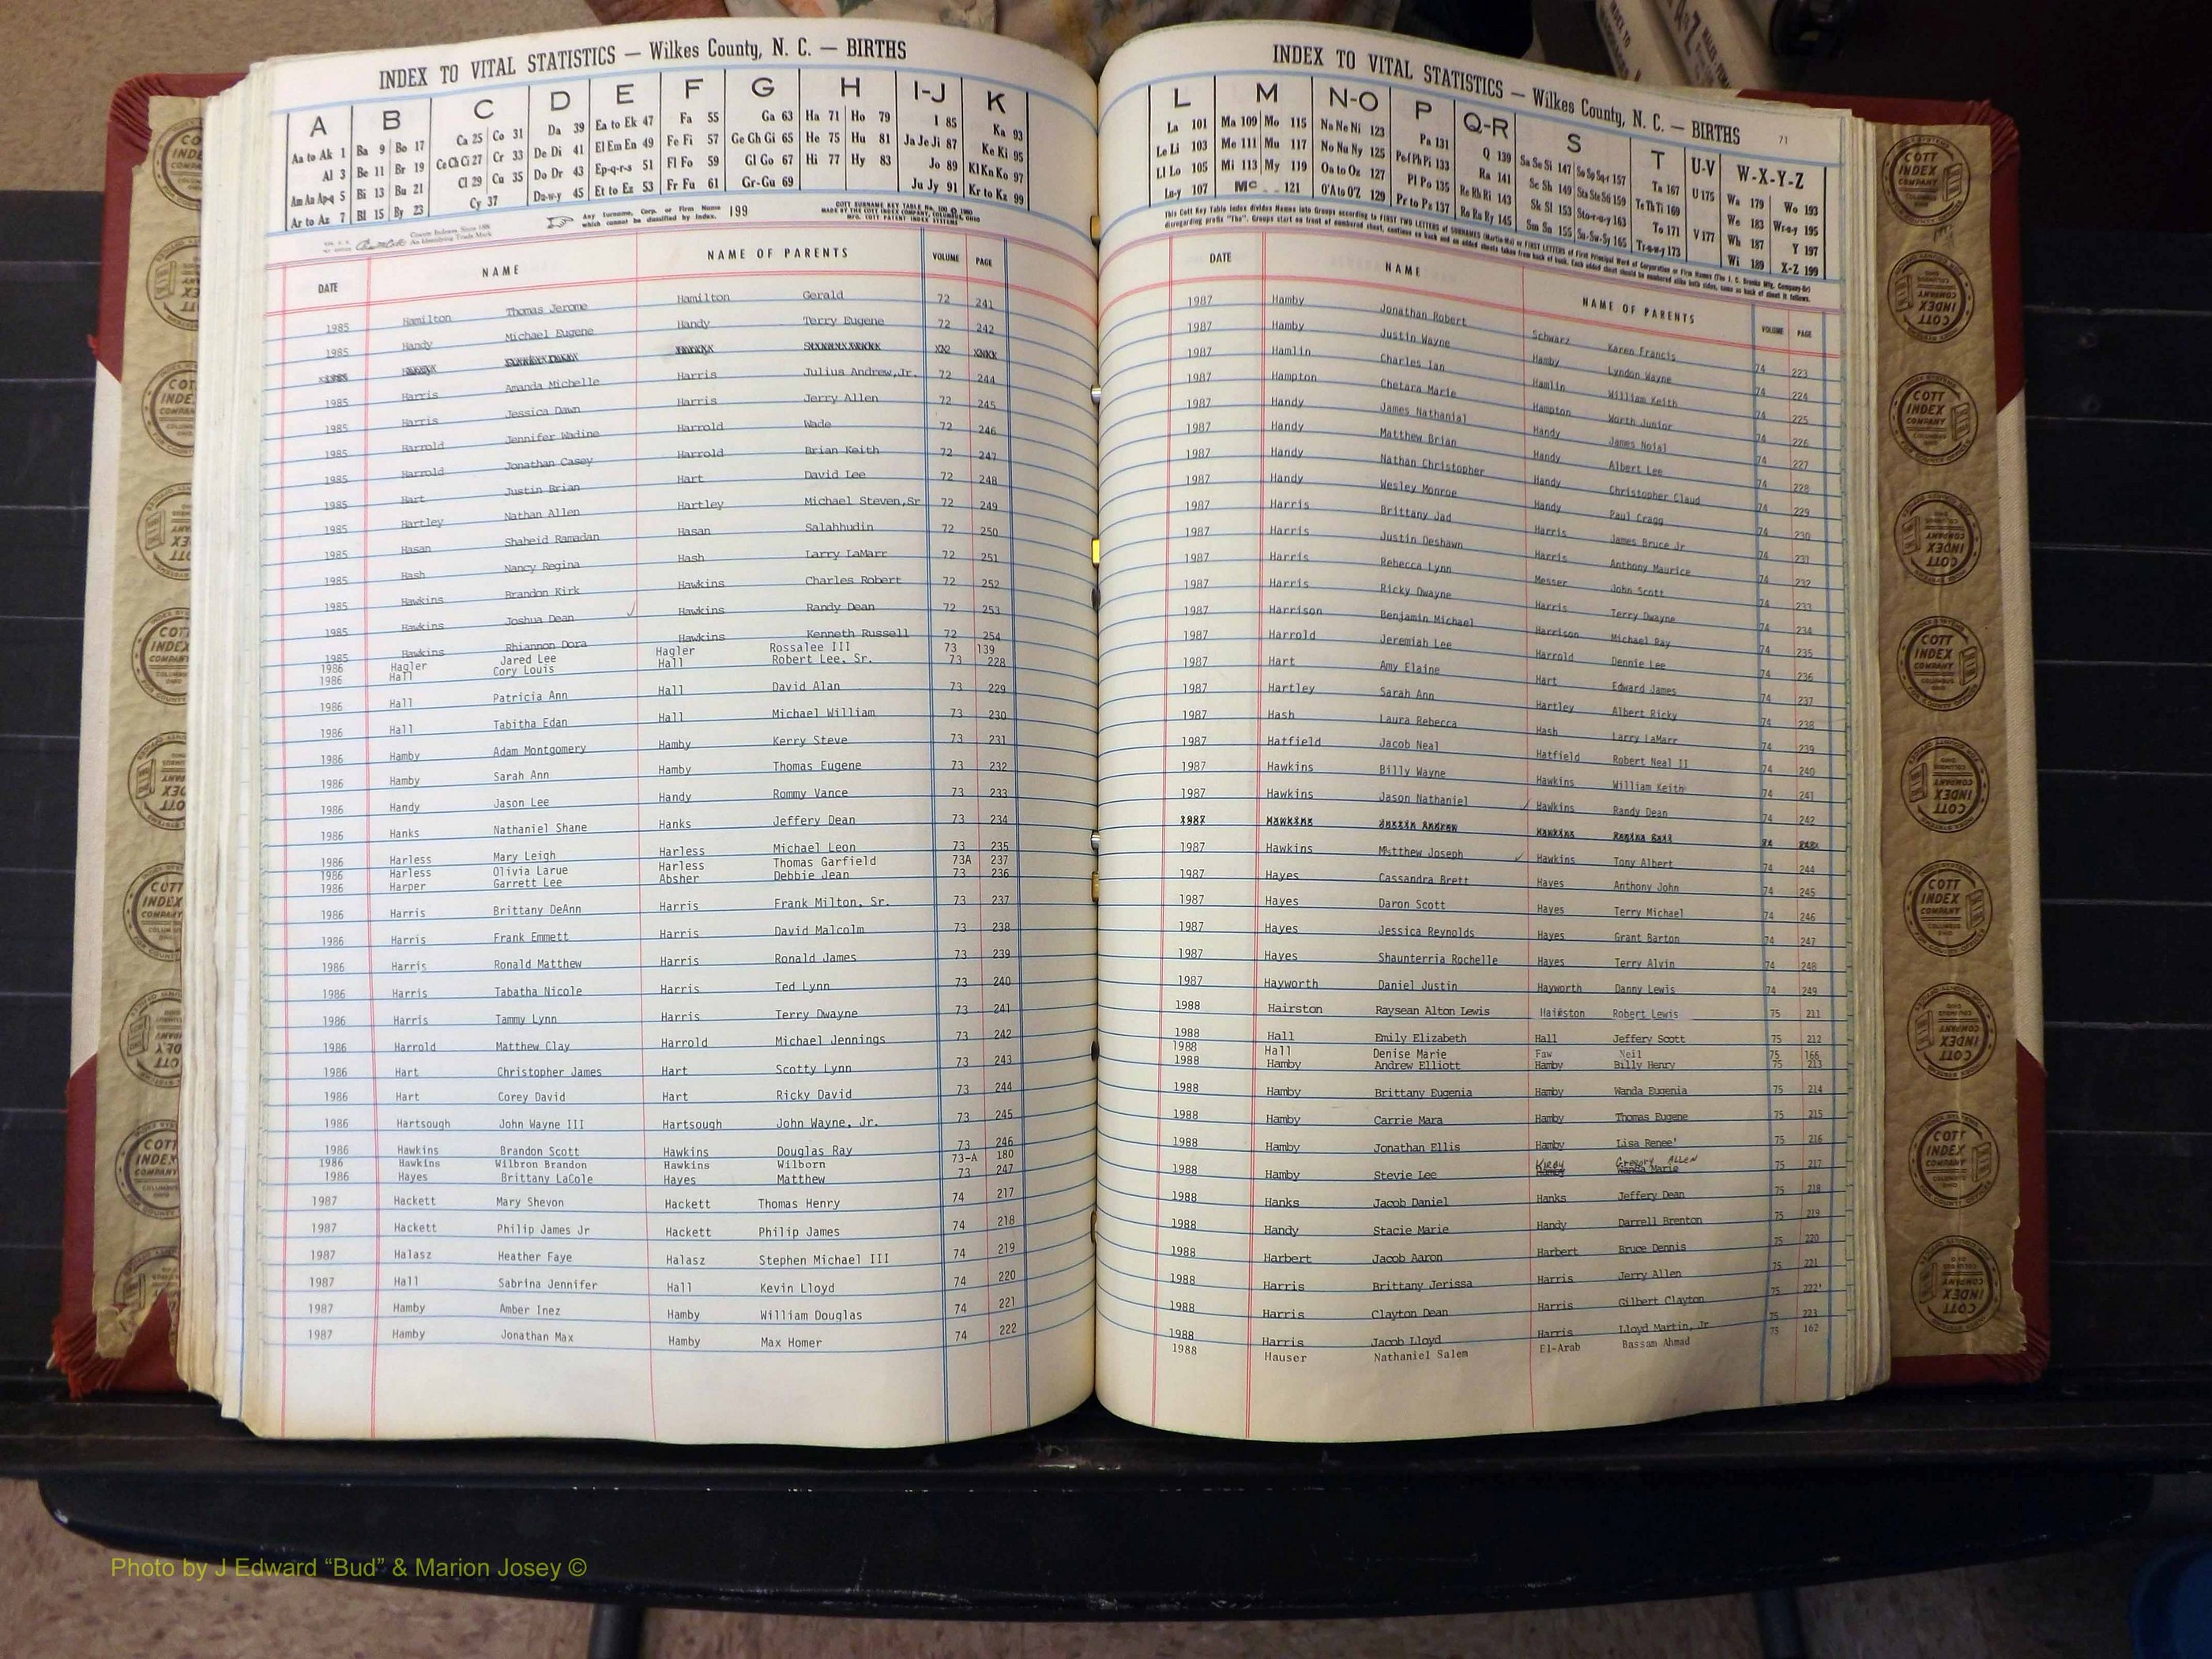 INDEX TO VITAL STATISTICS — Wilkes County, N. C. — BIRTHS
A B C D E F G H I-J K
Aa to Ak 1 Ba 9 Bo 17 Ca 25 Co 31 Da 39 Ea to Ek 47 Fa 55 Ga 63 Ha 71 Ho 79 I 85 Ka 93
Al 3 Be 11 Br 19 Ce Ch Ci 27 Cr 33 De Di 41 El Em En 49 Fe Fi 57 Ge Gh Gi 65 He 75 Hu 81 Ja Je Ji 87 Ke Ki 95
Am An Ap-q 5 Bi 13 Bu 21 Cl 29 Cu 35 Do Dr 43 Ep-q-r-s 51 Fl Fo 59 Gl Go 67 Hi 77 Hy 83 Jo 89 Kl Kn Ko 97
Ar to Az 7 Bl 15 By 23 Cy 37 Du-w-y 45 Et to Ez 53 Fr Fu 61 Gr-Gu 69 Ju Jy 91 Kr to Kz 99
Any Surname, Corp. or Firm Name which cannot be classified by Index. 199
DATE NAME NAME OF PARENTS VOLUME PAGE
1985 Hamilton Thomas Jerome Hamilton Gerald 72 241
1985 Handy Michael Eugene Handy Terry Eugene 72 242
1985 Harris Amanda Michelle Harris Julius Andrew,Jr. 72 244
1985 Harris Jessica Dawn Harris Jerry Allen 72 245
1985 Harrold Jennifer Wadine Harrold Wade 72 246
1985 Harrold Jonathan Casey Harrold Brian Keith 72 247
1985 Hart Justin Brian Hart David Lee 72 248
1985 Hartley Nathan Allen Hartley Michael Steven,Sr 72 249
1985 Hasan Shaheid Ramadan Hasan Salahhudin 72 250
1985 Hash Nancy Regina Hash Larry LaMarr 72 251
1985 Hawkins Brandon Kirk Hawkins Charles Robert 72 252
1985 Hawkins Joshua Dean Hawkins Randy Dean 72 253
1985 Hawkins Rhiannon Dora Hawkins Kenneth Russell 72 254
1986 Hagler Jared Lee Hagler Rossalee III 73 139
1986 Hall Cory Louis Hall Robert Lee, Sr. 73 228
1986 Hall Patricia Ann Hall David Alan 73 229
1986 Hall Tabitha Edan Hall Michael William 73 230
1986 Hamby Adam Montgomery Hamby Kerry Steve 73 231
1986 Hamby Sarah Ann Hamby Thomas Eugene 73 232
1986 Handy Jason Lee Handy Rommy Vance 73 233
1986 Hanks Nathaniel Shane Hanks Jeffery Dean 73 234
1986 Harless Mary Leigh Harless Michael Leon 73 235
1986 Harless Olivia Larue Harless Thomas Garfield 73A 237
1986 Harper Garrett Lee Absher Debbie Jean 73 236
1986 Harris Brittany DeAnn Harris Frank Milton, Sr. 73 237
1986 Harris Frank Emmett Harris David Malcolm 73 238
1986 Harris Ronald Matthew Harris Ronald James 73 239
1986 Harris Tabatha Nicole Harris Ted Lynn 73 240
1986 Harris Tammy Lynn Harris Terry Dwayne 73 241
1986 Harrold Matthew Clay Harrold Michael Jennings 73 242
1986 Hart Christopher James Hart Scotty Lynn 73 243
1986 Hart Corey David Hart Ricky David 73 244
1986 Hartsough John Wayne III Hartsough John Wayne, Jr. 73 245
1986 Hawkins Brandon Scott Hawkins Douglas Ray 73 246
1986 Hawkins Wilbron Brandon Hawkins Wilborn 73-A 180
1986 Hayes Brittany LaCole Hayes Matthew 73 247
1987 Hackett Mary Shevon Hackett Thomas Henry 74 217
1987 Hackett Philip James Jr Hackett Philip James 74 218
1987 Halasz Heather Faye Halasz Stephen Michael III 74 219
1987 Hall Sabrina Jennifer Hall Kevin Lloyd 74 220
1987 Hamby Amber Inez Hamby William Douglas 74 221
1987 Hamby Jonathan Max Hamby Max Homer 74 222
INDEX TO VITAL STATISTICS — Wilkes County, N. C. — BIRTHS 71
L M N-O P Q-R S T U-V W-X-Y-Z
La 101 Ma 109 Mo 115 Na Ne Ni 123 Pa 131 Q 139 Sa Se Si 147 So Sp Sq-r 157 Ta 167 U 175 Wa 179 Wo 193
Le Li 103 Me 111 Mu 117 No Nu Ny 125 Pe-f Ph Pi 133 Ra 141 Sc Sh 149 Sta Ste Sti 159 Te Th Ti 169 We 183 Wr-o-y 195
Ll Lo 105 Mi 113 My 119 Oa to Oz 127 Pl Po 135 Re Rh Ri 143 Sk Sl 153 Sto-r-u-y 163 To 171 V 177 Wh 187 Y 197
Lu-y 107 Mc 121 O'A to O'Z 129 Pr to Pz 137 Ro Ru Ry 145 Sm Sn 155 Su-Sw-Sy 165 Tr-u-w-y 173 Wi 189 X-Z 199
DATE NAME NAME OF PARENTS VOLUME PAGE
1987 Hamby Jonathan Robert Schwarz Karen Francis 74 223
1987 Hamby Justin Wayne Hamby Lyndon Wayne 74 224
1987 Hamlin Charles Ian Hamlin William Keith 74 225
1987 Hampton Chetara Marie Hampton Worth Junior 74 226
1987 Handy James Nathanial Handy James Noial 74 227
1987 Handy Matthew Brian Handy Albert Lee 74 228
1987 Handy Nathan Christopher Handy Christopher Claud 74 229
1987 Handy Wesley Monroe Handy Paul Cragg 74 230
1987 Harris Brittany Jad Harris James Bruce Jr 74 231
1987 Harris Justin Deshawn Harris Anthony Maurice 74 232
1987 Harris Rebecca Lynn Messer John Scott 74 233
1987 Harris Ricky Dwayne Harris Terry Dwayne 74 234
1987 Harrison Benjamin Michael Harrison Michael Ray 74 235
1987 Harrold Jeremiah Lee Harrold Dennie Lee 74 236
1987 Hart Amy Elaine Hart Edward James 74 237
1987 Hartley Sarah Ann Hartley Albert Ricky 74 238
1987 Hash Laura Rebecca Hash Larry LaMarr 74 239
1987 Hatfield Jacob Neal Hatfield Robert Neal II 74 240
1987 Hawkins Billy Wayne Hawkins William Keith 74 241
1987 Hawkins Jason Nathaniel Hawkins Randy Dean 74 242
1987 Hawkins Justin Andrew Hawkins Regina Gail 74
1987 Hawkins Matthew Joseph Hawkins Tony Albert 74 244
1987 Hayes Cassandra Brett Hayes Anthony John 74 245
1987 Hayes Daron Scott Hayes Terry Michael 74 246
1987 Hayes Jessica Reynolds Hayes Grant Barton 74 247
1987 Hayes Shaunterria Rochelle Hayes Terry Alvin 74 248
1987 Hayworth Daniel Justin Hayworth Danny Lewis 74 249
1988 Hairston Raysean Alton Lewis Hairston Robert Lewis 75 211
1988 Hall Emily Elizabeth Hall Jeffery Scott 75 212
1988 Hall Denise Marie Faw Neil 75 166
1988 Hamby Andrew Elliott Hamby Billy Henry 75 213
1988 Hamby Brittany Eugenia Hamby Wanda Eugenia 75 214
1988 Hamby Carrie Mara Hamby Thomas Eugene 75 215
1988 Hamby Jonathan Ellis Hamby Lisa Renee' 75 216
1988 Hamby Stevie Lee Kirby Gregory Allen Hamby Wanda Marie 75 217
1988 Hanks Jacob Daniel Hanks Jeffery Dean 75 218
1988 Handy Stacie Marie Handy Darrell Brenton 75 219
1988 Harbert Jacob Aaron Harbert Bruce Dennis 75 220
1988 Harris Brittany Jerissa Harris Jerry Allen 75 221
1988 Harris Clayton Dean Harris Gilbert Clayton 75 222
1988 Harris Jacob Lloyd Harris Lloyd Martin, Jr 75 223
1988 Hauser Nathaniel Salem El-Arab Bassam Ahmad 75 162
COTT INDEX COMPANY COLUMBUS OHIO
Photo by J Edward “Bud” & Marion Josey ©